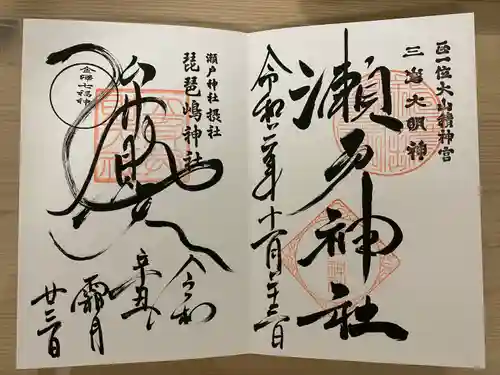 正一位大山積神宮
三島大明神
瀬戸神社
令和三年十一月廿三日
瀬戸神社摂社
琵琶嶋神社
金澤七福神
令和
辛丑
霜月
廿三日